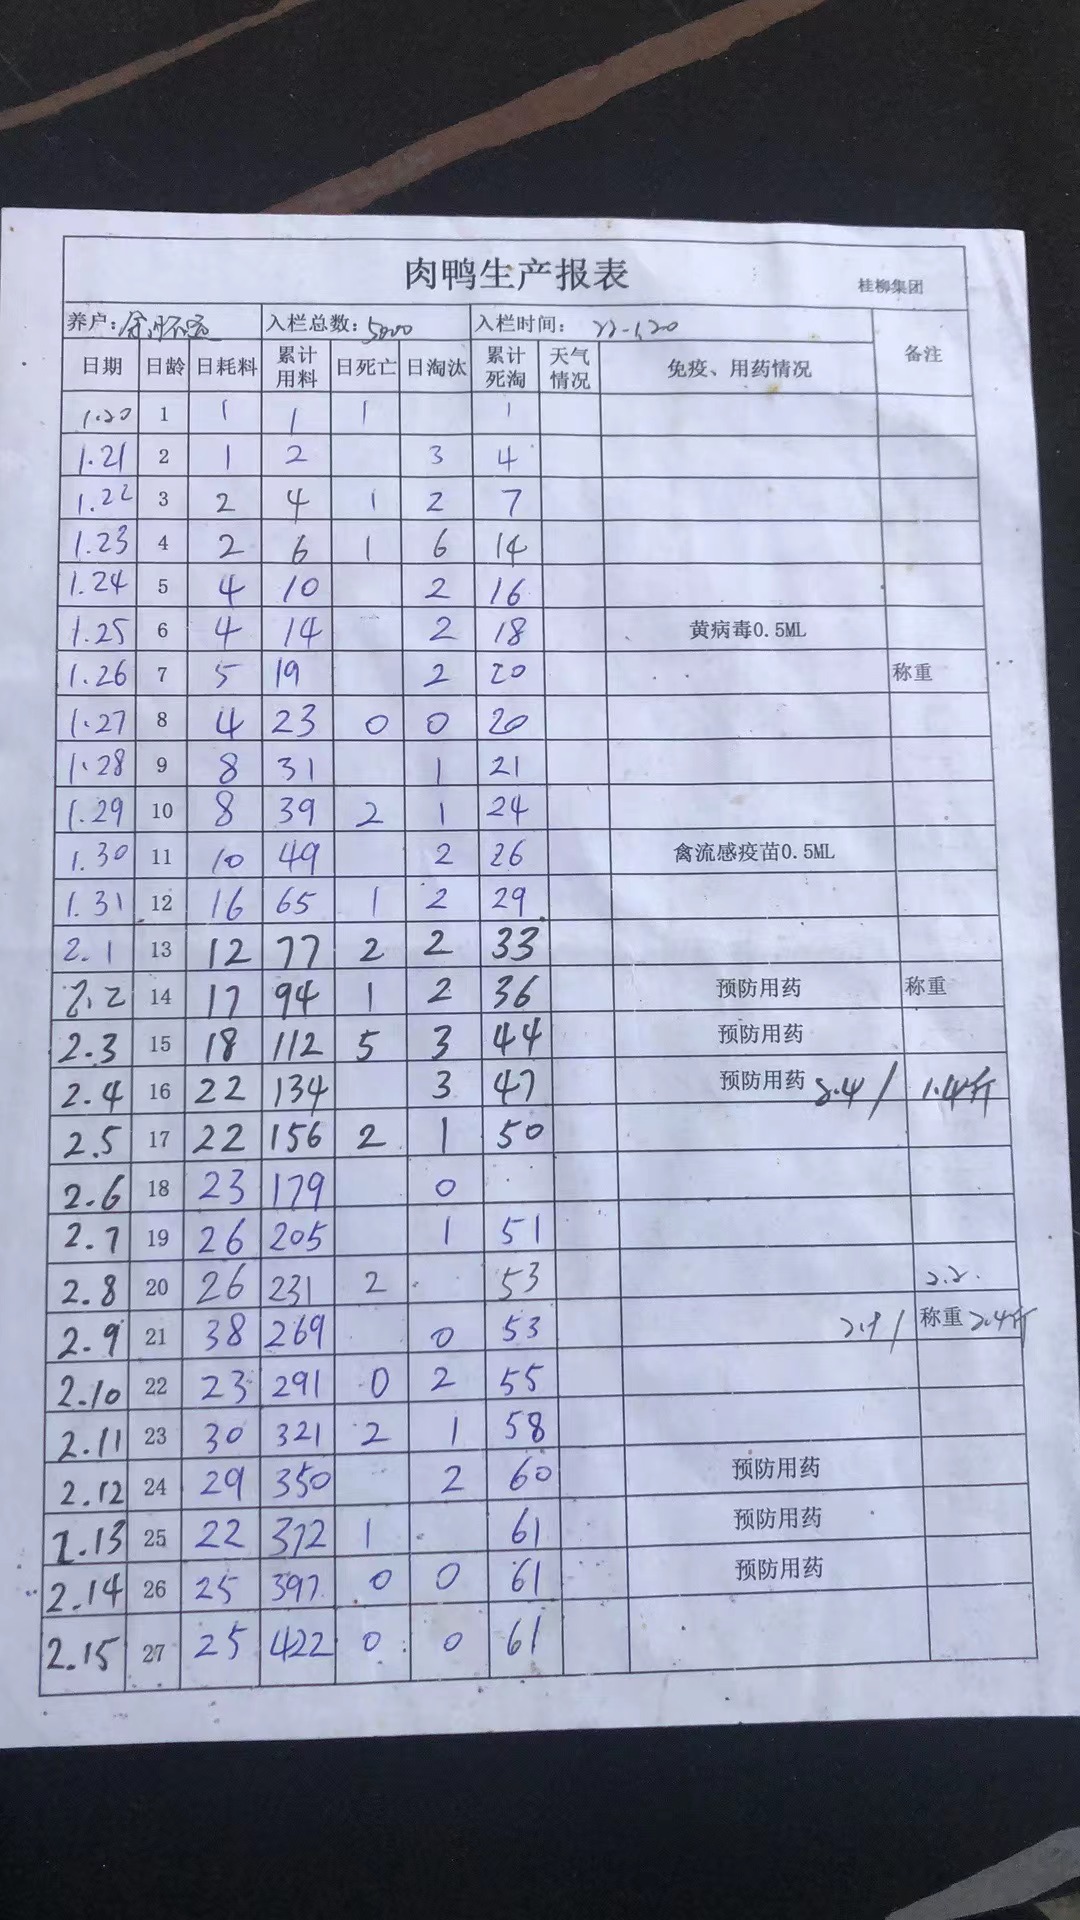 肉鸭生产报表
桂柳集团
养户: 入栏总数: 5000 入栏时间: 22-1.20
日期 日龄 日耗料 累计用料 日死亡 日淘汰 累计死淘 天气情况 免疫、用药情况 备注
1.20 1 1 1 1 1
1.21 2 1 2 3 4
1.22 3 2 4 1 2 7
1.23 4 2 6 1 6 14
1.24 5 4 10 2 16
1.25 6 4 14 2 18 黄病毒0.5ML
1.26 7 5 19 2 20 称重
1.27 8 4 23 0 0 20
1.28 9 8 31 1 21
1.29 10 8 39 2 1 24
1.30 11 10 49 2 26 禽流感疫苗0.5ML
1.31 12 16 65 1 2 29
2.1 13 12 77 2 2 33
2.2 14 17 94 1 2 36 预防用药 称重
2.3 15 18 112 5 3 44 预防用药
2.4 16 22 134 3 47 预防用药 2.4/ 1.4斤
2.5 17 22 156 2 1 50
2.6 18 23 179 0
2.7 19 26 205 1 51
2.8 20 26 231 2 53 2.2.
2.9 21 38 269 0 53 2.9/ 称重 2.4斤
2.10 22 23 291 0 2 55
2.11 23 30 321 2 1 58
2.12 24 29 350 2 60 预防用药
2.13 25 22 372 1 61 预防用药
2.14 26 25 397 0 0 61 预防用药
2.15 27 25 422 0 0 61